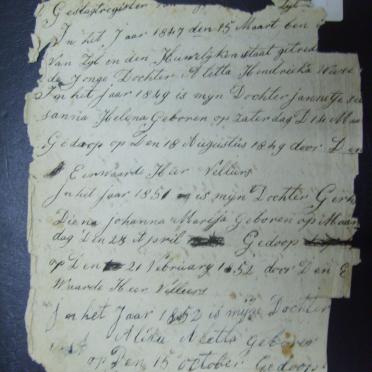 Geslagtregister van
In het Jaar 1847 den 15 Maart ben
Van Zyl in den Huwlyken staat getred
de Jonge Dochter Aletta Hendrieka
In het jaar 1849 is myn Dochter
sanna Helena Geboren op zaterdag D 14
Gedoop op Den 18 Augustus 1849 door Den
Eerwaarde Heer Velliers
In het jaar 1851 is myn Dochter Gerh
Diena Johanna Maresja Geboren op Maan
dag Den 28 April Gedoop
op Den 21 February 1852 door Den E
Waarde Heer Velliers
In het Jaar 1852 is myn Dochter
Aletta Geboren
op Den 15 October Gedoop